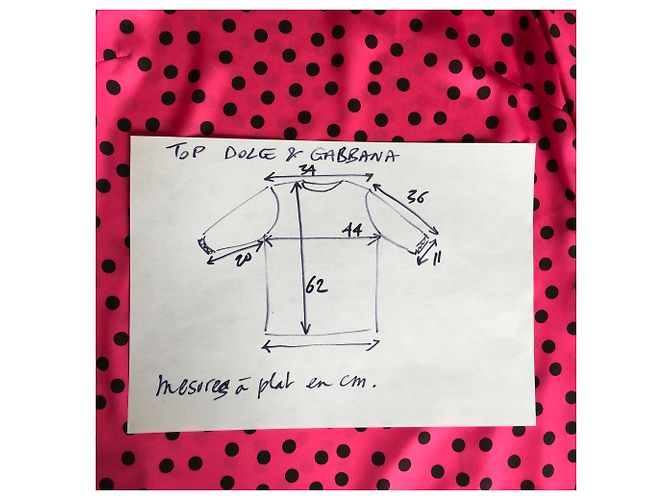 TOP DOLCE & GABBANA
34
36
44
20
11
62
mesures à plat en cm.